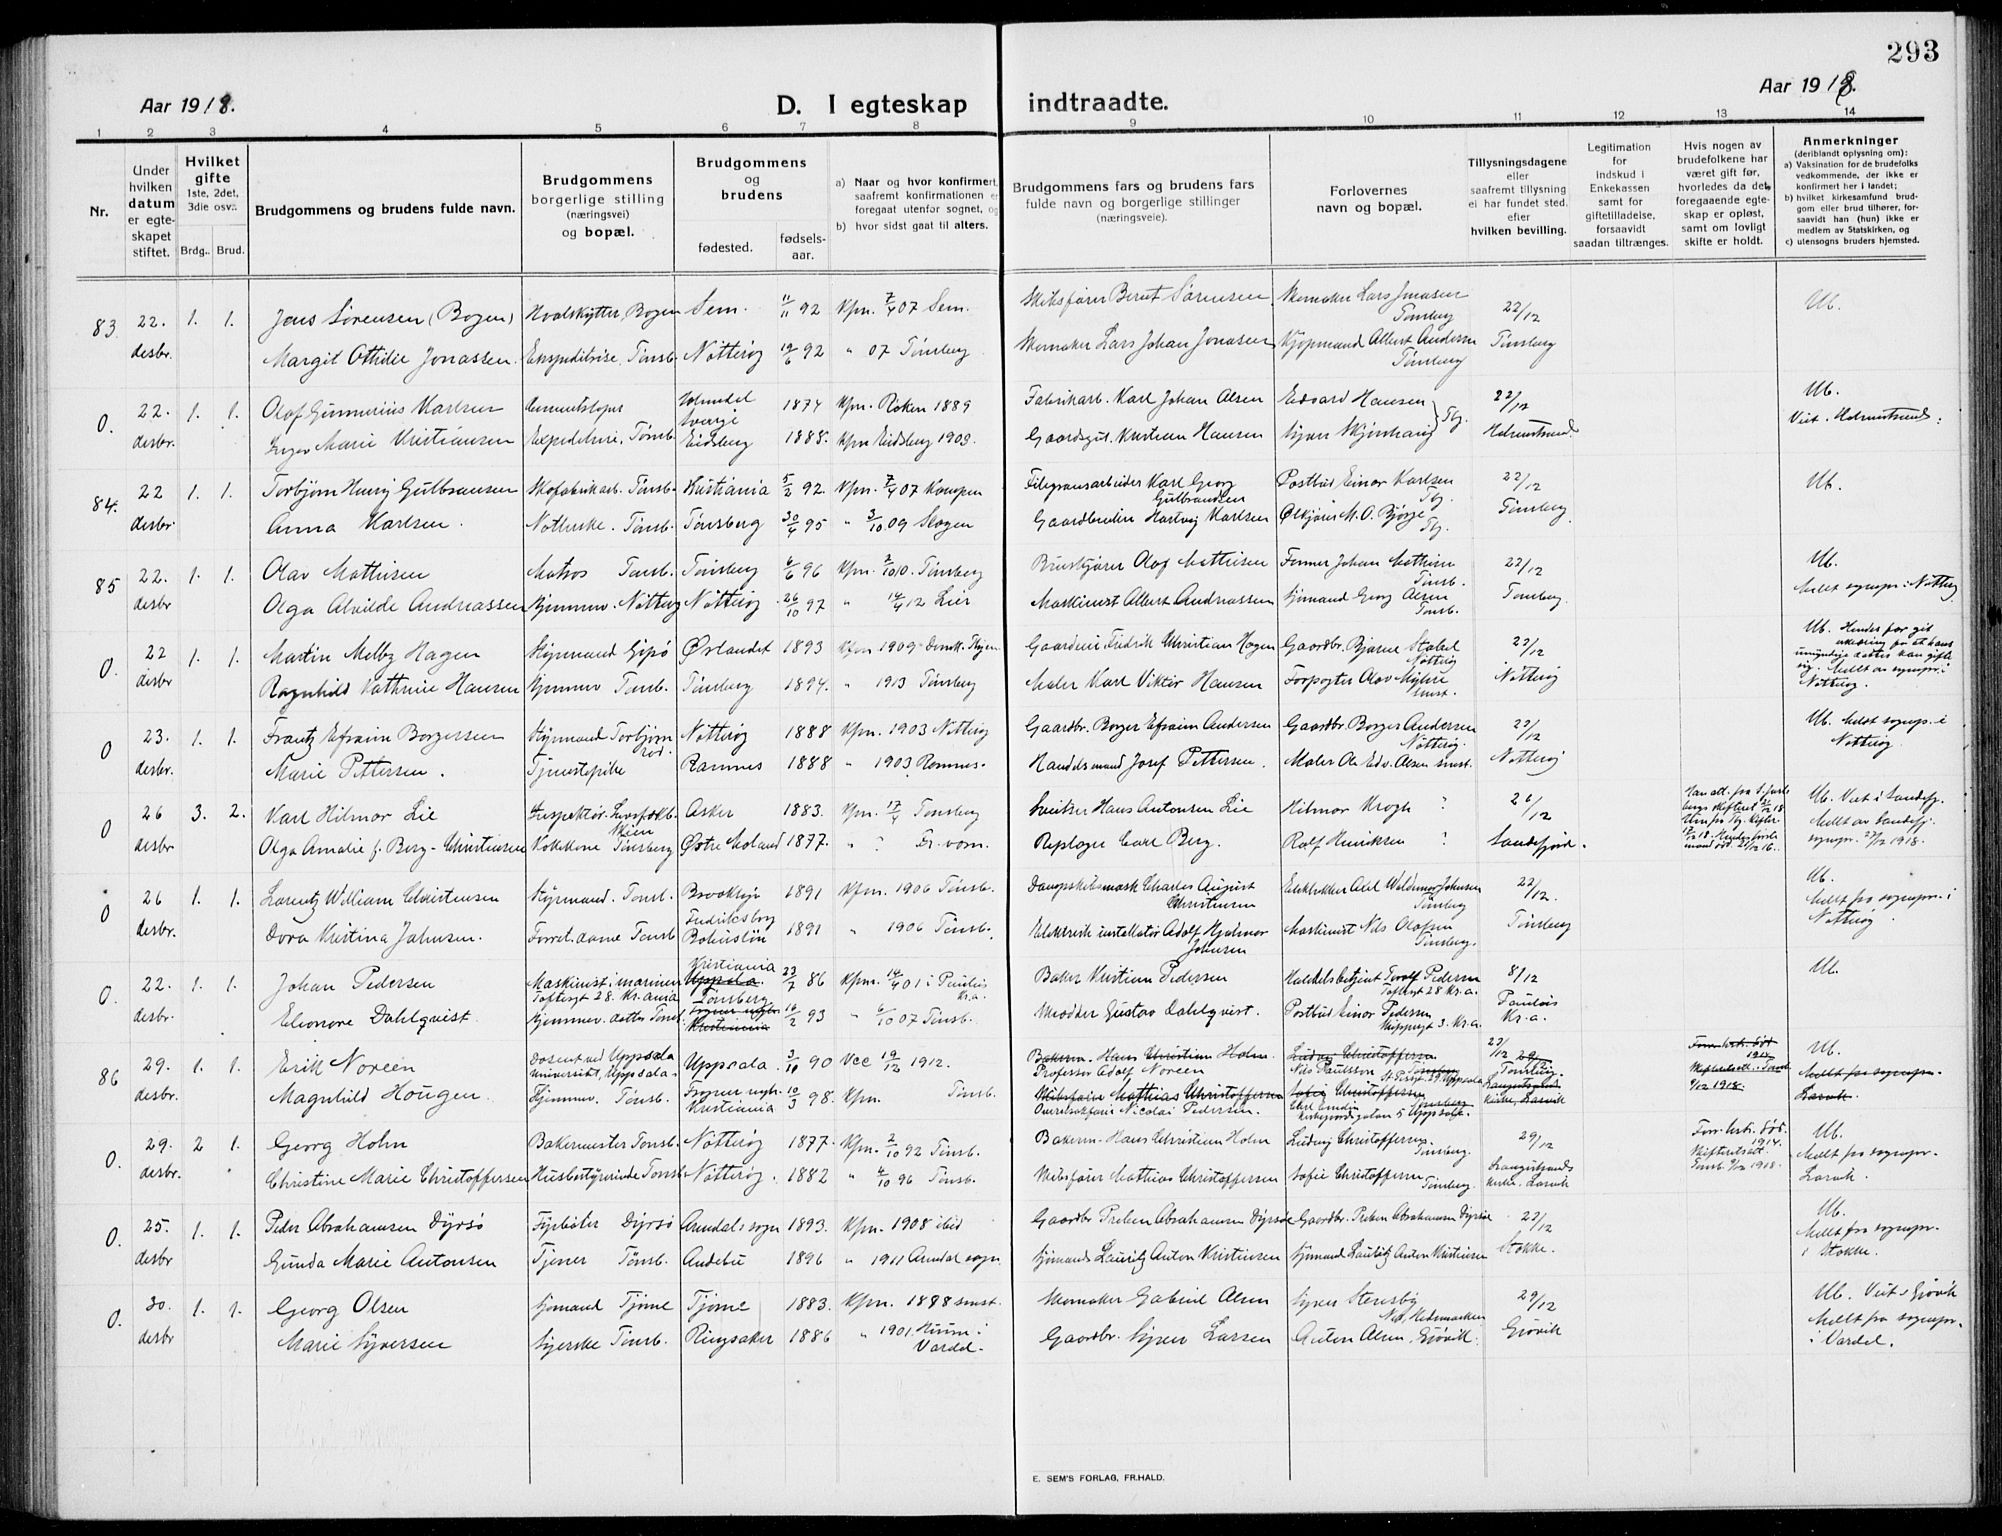 293
Aar 1918.
D. I egteskap
indtraadte.
Aar 1918.
1 2 3 4 5 6 7 8 9 10 11 12 13 14
Nr.
Under hvilken datum er egte-skapet stiftet.
Hvilket gifte 1ste, 2det, 3die osv.
Brdg.. Brud.
Brudgommens og brudens fulde navn.
Brudgommens borgerlige stilling (næringsvei) og bopæl.
Brudgommens og brudens
fødested.
fødsels-aar.
a) Naar og hvor konfirmert, saafremt konfirmationen er foregaat utenfor sognet, og
b) hvor sidst gaat til alters.
Brudgommens fars og brudens fars fulde navn og borgerlige stillinger (næringsveie).
Forlovernes navn og bopæl.
Tillysningsdagene eller saafremt tillysning ei har fundet sted. efter hvilken bevilling.
Legitimation for indskud i Enkekassen samt for giftetilladelse, forsaavidt saadan tiltrænges.
Hvis nogen av brudefolkene har været gift før, hvorledes da det foregaaende egte-skap er opløst, samt om lovligt skifte er holdt.
Anmerkninger (deriblandt oplysning om):
a) Vaksination for de brudefolks vedkommende, der ikke er konfirmert her i landet;
b) hvilket kirkesamfund brud-gom eller brud tilhører, for-saavidt han (hun) ikke er medlem av Statskirken, og
c) utensogns bruders hjemsted.
83 22. 1. 1. Jens Sørensen (Bogen) Hvalskytter, Bogen Sem. 11/11 92 Kfm. 7/4 07 Sem. Skibsfører Bernt Sørensen Skomaker Lars Jonasen Tønsberg 22/12 Ub.
desbr. Margit Othilie Jonassen Ekspeditrise. Tønsb. Nøtterøy 19/6 92 " 07 Tønsberg Skomaker Lars Johan Jonasen Kjøpmand Albert Andersen Tønsberg Tønsberg
0. 22. 1. 1. Olof Gunnerius Karlsen 1874 Kfm. Røken 1889 Fabrikarb. Karl Johan Olsen Edvard Hansen 22/12 Ub.
desbr. Inger Marie Kristiansen Expeditrise, Tønsb. Eidsberg 1888. Kfm Eidsberg 1903. Gaardsgut. Kristian Hansen Tbg. Holmestrand. Viet i Holmestrand
84. 22 1. 1. Torbjørn Henry Gulbransen Skofabrikarb. Tønsb. Kristiania 5/2 92. Kfm. 7/4 07 Kaupen Filigransarbeider Karl Georg Gulbrandsen Postbud Einar Karlsen Tbg. 22/12 Ub.
desbr. Anna Karlsen. Tønsb. Tønsberg 30/4 95 " 3/10 09 Skogen Hartvig Karlsen M. O. Bjørge Tbg. Tønsberg
85 22. 1. 1. Olav Mathisen Matros Tønsb. Tønsberg 6/6 96 Kfm. 2/10 10. Tønsberg Olof Mathisen Former Johan Mathisen Tønsb. 22/12 Ub.
desbr Olga Alvilde Andreassen Hjemmev. Nøtterøy Nøtterøy 26/10 97 " 14/4 12 Lier Maskinist Albert Andreassen Sjømand Georg Olsen Tønsb. Tønsberg. Meldt sognepr. i Nøtterøy
0. 22 1. 1. Martin Melby Hagen Styrmand Gipø Ørlandet 1893 Kfm 1909 Gaardeier Fredrik Christian Hagen Gaardbr. Bjarne Stabel Nøtterøy 22/12 Ub.
desbr Ragnhild Kathrine Hansen Hjemmev Tønsb. Tønsberg 1894. " 1913 Tønsberg Maler Karl Viktor Hansen Forpagter Olav Myhre smst. Nøtterøy
0 23. 1. 1. Frantz Efraim Borgersen Styrmand Torbjørnrød. Nøtterøy 1888 Kfm. 1903 Nøtterøy Gaardbr. Borger Efraim Andersen Gaardbr. Borger Andersen Nøtterøy. 22/12 Ub. Meldt sognepr. i Nøtterøy.
desbr. Marie Pettersen. Tjenestepike Ramnes 1888 " 1903 Ramnes. Handelsmand Josef Pettersen. Maler Ole Edv. Olsen smst. Nøtterøy
0 26 3. 2. Karl Hilmar Lie Inspektør. Skien Asker 1883. Kfm. 17/4 Tønsberg Hans Antonsen Lie Hilmar Krogh ? 26/12 Ub. Viet i Sandefj.
desbr Olga Amalie f. Berg-Christiansen Kokkekone Tønsberg Østre Moland 1877. " ? Fr. vern. Repslager Carl Berg. Rolf Henriksen ? Sandefjord. Meldt av Sandefj. sognepr. 27/12 1918.
0 26 1. 1. Lorentz William Christensen Styrmand. Tønsb. Brooklyn 1891 Kfm. 1906 Tønsb. Charles August Christensen Adel Waldemar Johnsen Tønsberg 22/12. Ub.
desbr. Dora Kristina Johnsen. Forret.dame Tønsb Bohuslän 1891 " 1906 Tønsb. Elektrisk installatør Adolf Hjalmar Johnsen Maskinist Nils Olofsen Tønsberg. Tønsberg Meldt fra sognepr. i Nøtterøy
0. 22. 1. 1. Johan Pedersen Maskinist i marinen Toftesgt 28. Kr.ania Kristiania Uppsala. 23/7 86 Kfm. 14/4 01 i Paulus Kr.a. Baker Kristian Pedersen Handelsbetjent Torolf Pedersen Toftesgt 28 Kr.a. 8/12 Ub.
desbr. Eleonore Dahlqvist. Hjemmev. datter Tønsb. Tønsberg Kristiania 16/2 93 " 6/10 07 Tønsb. Snedker Gustav Dahlqvist. Postbud Einar Pedersen Skippergt 3. Kr.a. Paulus Kr.a.
86 29. 1. 1. Erik Noreen Dosent ved Uppsala Universitet, Uppsala. Uppsala. 3/10 90 19/12 1912. Bakerm. Hans Christian Holm. Professor Adolf Noreen Ludvig Christoffersen Nils Paulsson Uppsala 29/12 Tønsberg. Ub.
desbr. Magnhild Hougen. Hjemmev. Tønsb. Frogner Kristiania 10/3 98. Kfm. Tønsb. Skibsfører Mathias Christoffersen Overretssakfører Nicolai Pedersen. Sofie Christoffersen Tønsberg Uppsala. Larvik 9/12 1918. Meldt fra sognepr. Larvik.
0. 29. 2 1. Georg Holm Bakermester Tønsb. Nøtterøy 1877. Kfm. 2/10 92 Tønsb. Bakerm. Hans Christian Holm Ludvig Christoffersen. Tønsberg. 29/12 Forr. hustr. død. 1914. Ub.
desbr. Christine Marie Christoffersen Husbestyrerinde Tønsb. Nøtterøy. 1882 " 4/10 96 Tønsb. Skibsfører Mathias Christoffersen Sofie Christoffersen Tønsberg. Langestrands kirke. Larvik Skifteretsatt. Tønsb. 9/12 1918. Meldt fra sognepr. Larvik.
0. 25. 1. 1. Peder Abrahamsen Dyrsø Fyrbøter Dyrsø Arendals sogn 1893. Kfm. 1908 ibid Gaardbr Preben Abrahamsen Dyrsø Gaardbr. Preben Abrahamsen Dyrsø 22/12 Ub.
desbr Gunda Marie Antonsen Tjener Tønsb. Andebu 1896 " 1911 Arendal sogn Sjømand Lauritz Anton Kristiansen Sjømand Lauritz Anton Kristiansen Stokke. Meldt fra sognepr. i Stokke.
0. 30. 1. 1. Georg Olsen Sjømand Tjøme Tjøme 1883. Kfm. 1898 smst. Skomaker Gabriel Olsen Syver Stensby Nes, Hedemarken 29/12 Ub. Viet i Gjøvik
desbr Marie Syversen Syerske Tønsb. Ringsaker 1886 " 1901. Hunn i Vardal. Gaardbr. Syver Larsen Anton Olsen, Gjøvik. Gjøvik Meldt fra sognepr. i Vardal.
E. SEM'S FORLAG, FR.HALD.